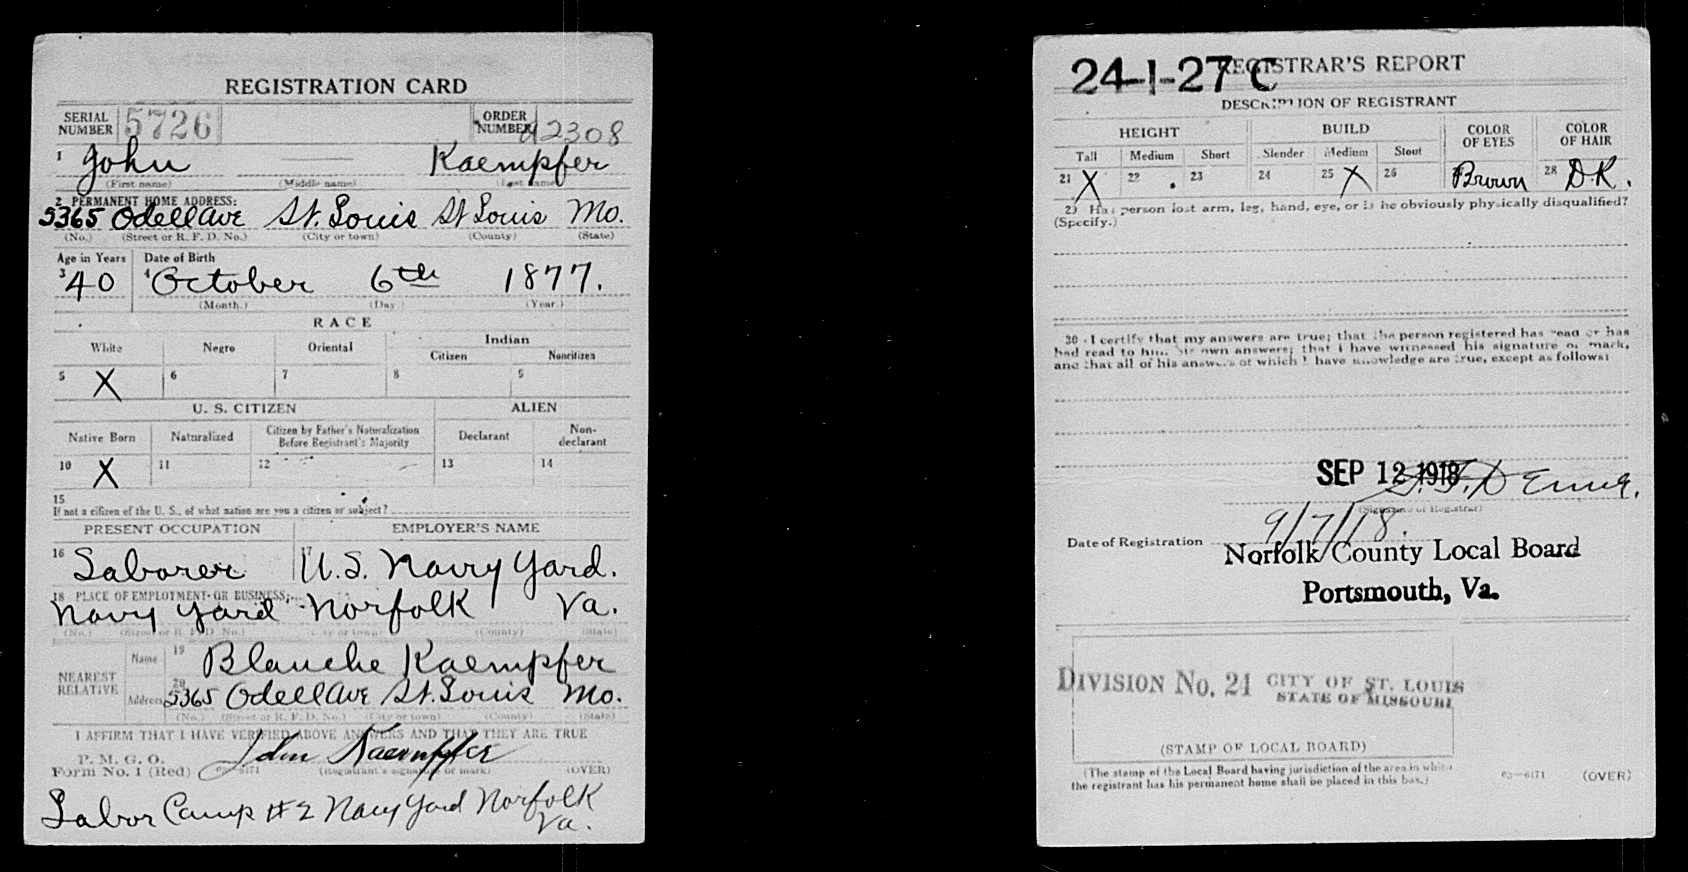 REGISTRATION CARD
SERIAL NUMBER 5726 ORDER NUMBER A2308
1 John Kaempfer
(First name) (Middle name) (Last name)
2 PERMANENT HOME ADDRESS:
5365 Odell Ave St. Louis St Louis Mo.
(No.) (Street or R. F. D. No.) (City or town) (County) (State)
Age in Years Date of Birth
3 40 4 October 6th 1877.
(Month.) (Day.) (Year.)
RACE
White Negro Oriental Indian
Citizen Noncitizen
5 X 6 7 8 9
U. S. CITIZEN ALIEN
Native Born Naturalized Citizen by Father's Naturalization Before Registrant's Majority Declarant Non-declarant
10 X 11 12 13 14
15
If not a citizen of the U. S., of what nation are you a citizen or subject?
PRESENT OCCUPATION EMPLOYER'S NAME
16 Laborer 17 U.S. Navy Yard.
18 PLACE OF EMPLOYMENT OR BUSINESS:
Navy Yard Norfolk Va.
(No.) (Street or R. F. D. No.) (City or town) (County) (State)
NEAREST RELATIVE
Name 19 Blanche Kaempfer
Address 20 5365 Odell Ave St. Louis Mo.
(No.) (Street or R. F. D. No.) (City or town) (County) (State)
I AFFIRM THAT I HAVE VERIFIED ABOVE ANSWERS AND THAT THEY ARE TRUE
P. M. G. O.
Form No. 1 (Red) John Kaempffer
(Registrant's signature or mark) (OVER)
Labor Camp # 2 Navy Yard Norfolk
Va.
24-1-27 C REGISTRAR'S REPORT
DESCRIPTION OF REGISTRANT
HEIGHT BUILD COLOR OF EYES COLOR OF HAIR
Tall Medium Short Slender Medium Stout
21 X 22 23 24 25 X 26 Brown 28 DK.
29 Has person lost arm, leg, hand, eye, or is he obviously physically disqualified?
(Specify.)
30 I certify that my answers are true; that the person registered has read or has
had read to him his own answers; that I have witnessed his signature or mark,
and that all of his answers of which I have knowledge are true, except as follows:
SEP 12 1918
(Signature of Registrar)
Date of Registration 9/7/18.
Norfolk County Local Board
Portsmouth, Va.
DIVISION No. 24 CITY OF ST. LOUIS
STATE OF MISSOURI
(STAMP OF LOCAL BOARD)
(The stamp of the Local Board having jurisdiction of the area in which
the registrant has his permanent home shall be placed in this box.)
63-6171 (OVER)